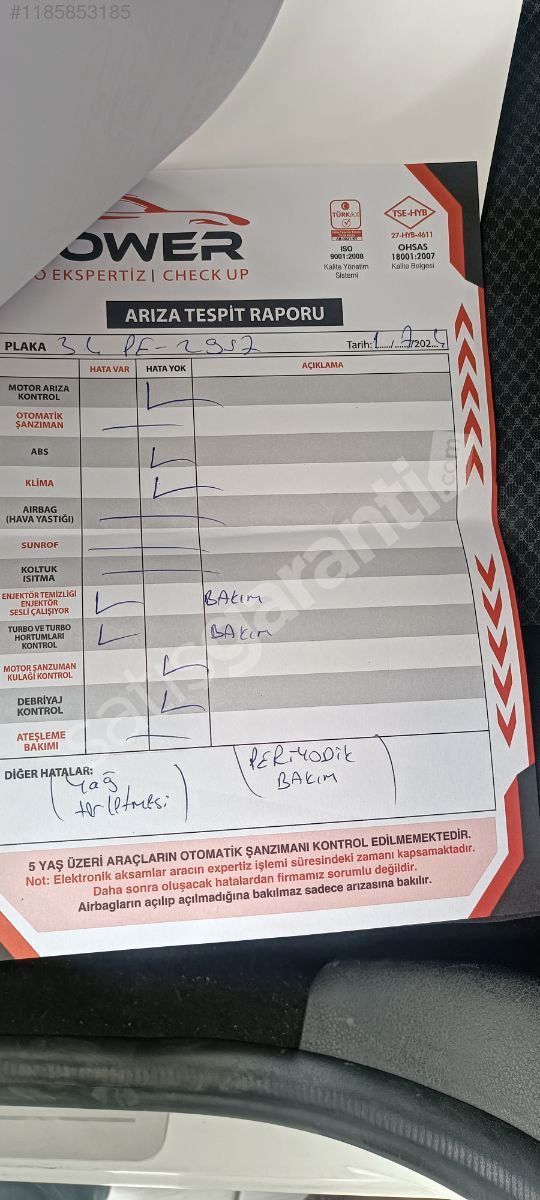 #1185853185
POWER
O EKSPERTİZ | CHECK UP
TÜRKAK
ISO
9001:2008
Kalite Yönetim
Sistemi
TSE-HYB
27-HYB-4611
OHSAS
18001:2007
Kalite Belgesi
ARIZA TESPİT RAPORU
PLAKA 34 PE-2957 Tarih: 1 / 7 /2024
HATA VAR HATA YOK AÇIKLAMA
MOTOR ARIZA
KONTROL
OTOMATİK
ŞANZIMAN
ABS
KLİMA
AIRBAG
(HAVA YASTIĞI)
SUNROF
KOLTUK
ISITMA
ENJEKTÖR TEMİZLİĞİ
ENJEKTÖR
SESLİ ÇALIŞIYOR
BAKIM
TURBO VE TURBO
HORTUMLARI
KONTROL
BAKIM
MOTOR ŞANZUMAN
KULAĞI KONTROL
DEBRİYAJ
KONTROL
ATEŞLEME
BAKIMI
DİĞER HATALAR:
(Yağ
terletmesi)
(PERİYODİK
BAKIM)
5 YAŞ ÜZERİ ARAÇLARIN OTOMATİK ŞANZIMANI KONTROL EDİLMEMEKTEDİR.
Not: Elektronik aksamlar aracın expertiz işlemi süresindeki zamanı kapsamaktadır.
Daha sonra oluşacak hatalardan firmamız sorumlu değildir.
Airbagların açılıp açılmadığına bakılmaz sadece arızasına bakılır.
satisgaranti.com